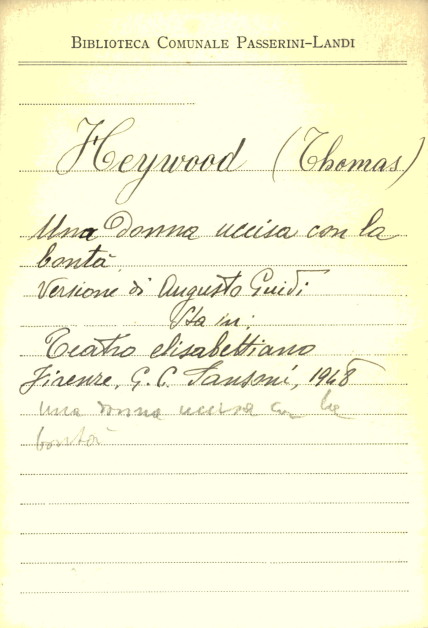 BIBLIOTECA COMUNALE PASSERINI-LANDI
Heywood (Thomas)
Una donna uccisa con la
bontà.
Versione di Augusto Guidi
Sta in:
Teatro elisabettiano
Firenze, G. C. Sansoni, 1948
Una donna uccisa con la
bontà